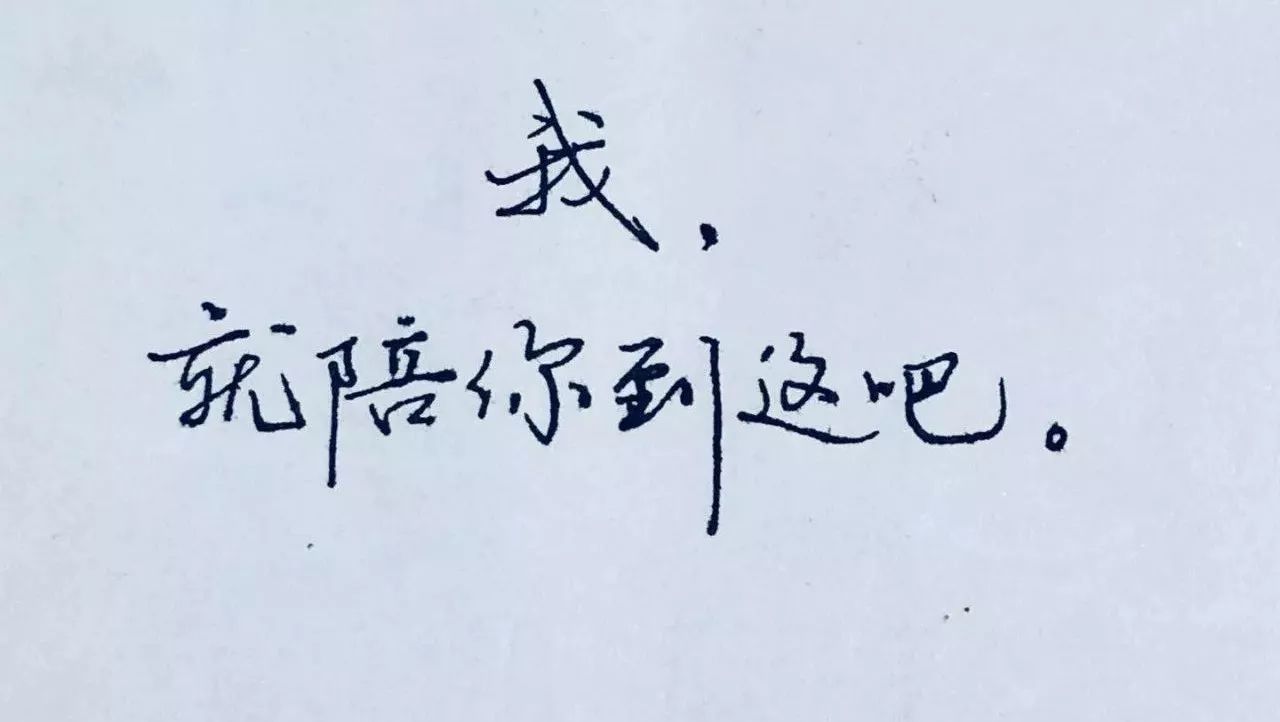 我，
就陪你到这吧。